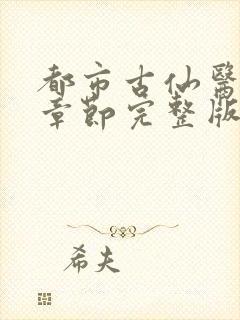 都市古仙醫
章節完整版
希夫